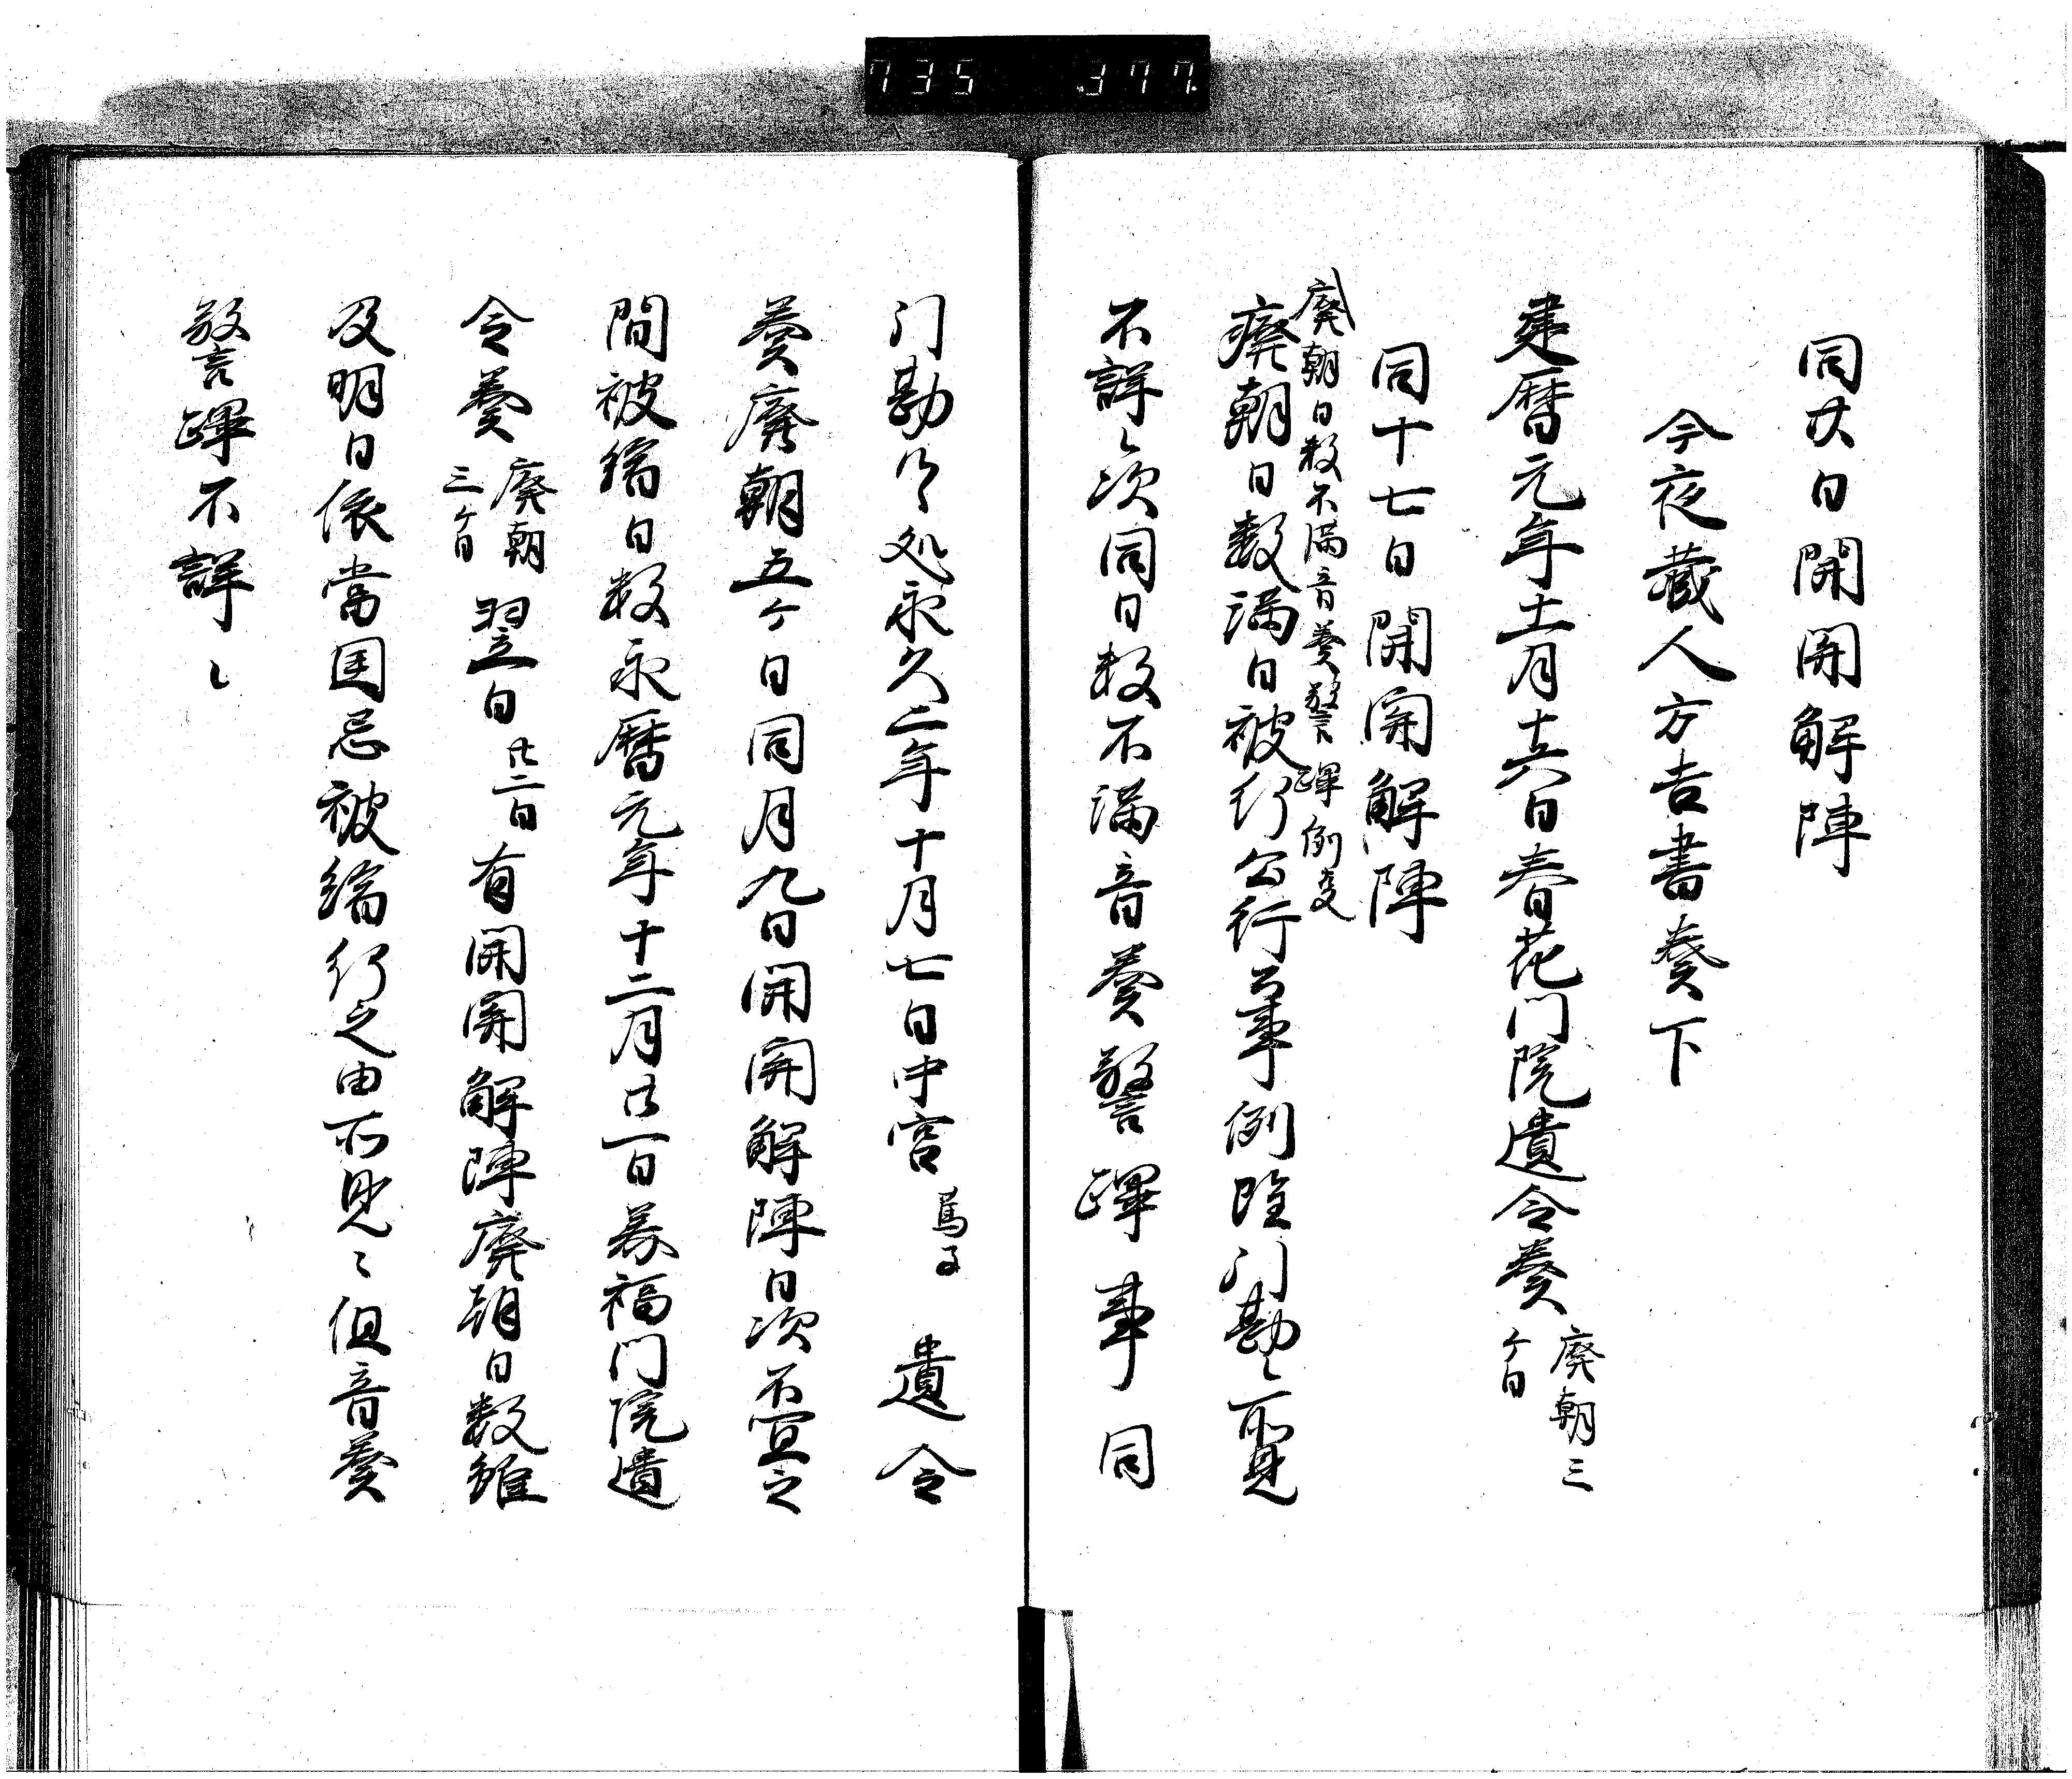 735 .377.
同廿日開関解陣
今夜蔵人方吉書奏下
建暦元年十一月十六日春花門院遺令奏 廃朝三ケ日
同十七日開関解陣
廃朝日数不満音奏警蹕例事
廃朝日数満日被行公行事例随門勘之所見
不詳之次同日数不満音奏警蹕事同
門勘了処永久二年十月七日中宮 篤子 遺令
奏廃朝五ケ日同月九日開関解陣日次不宜之
間被縮日数永暦元年十二月 一日美福門院遺
令奏 廃朝三ケ日 翌日 廿二日 有開関解陣廃朝日数雖
及明日依當国忌被縮行之由所見々但音奏
警蹕不詳之